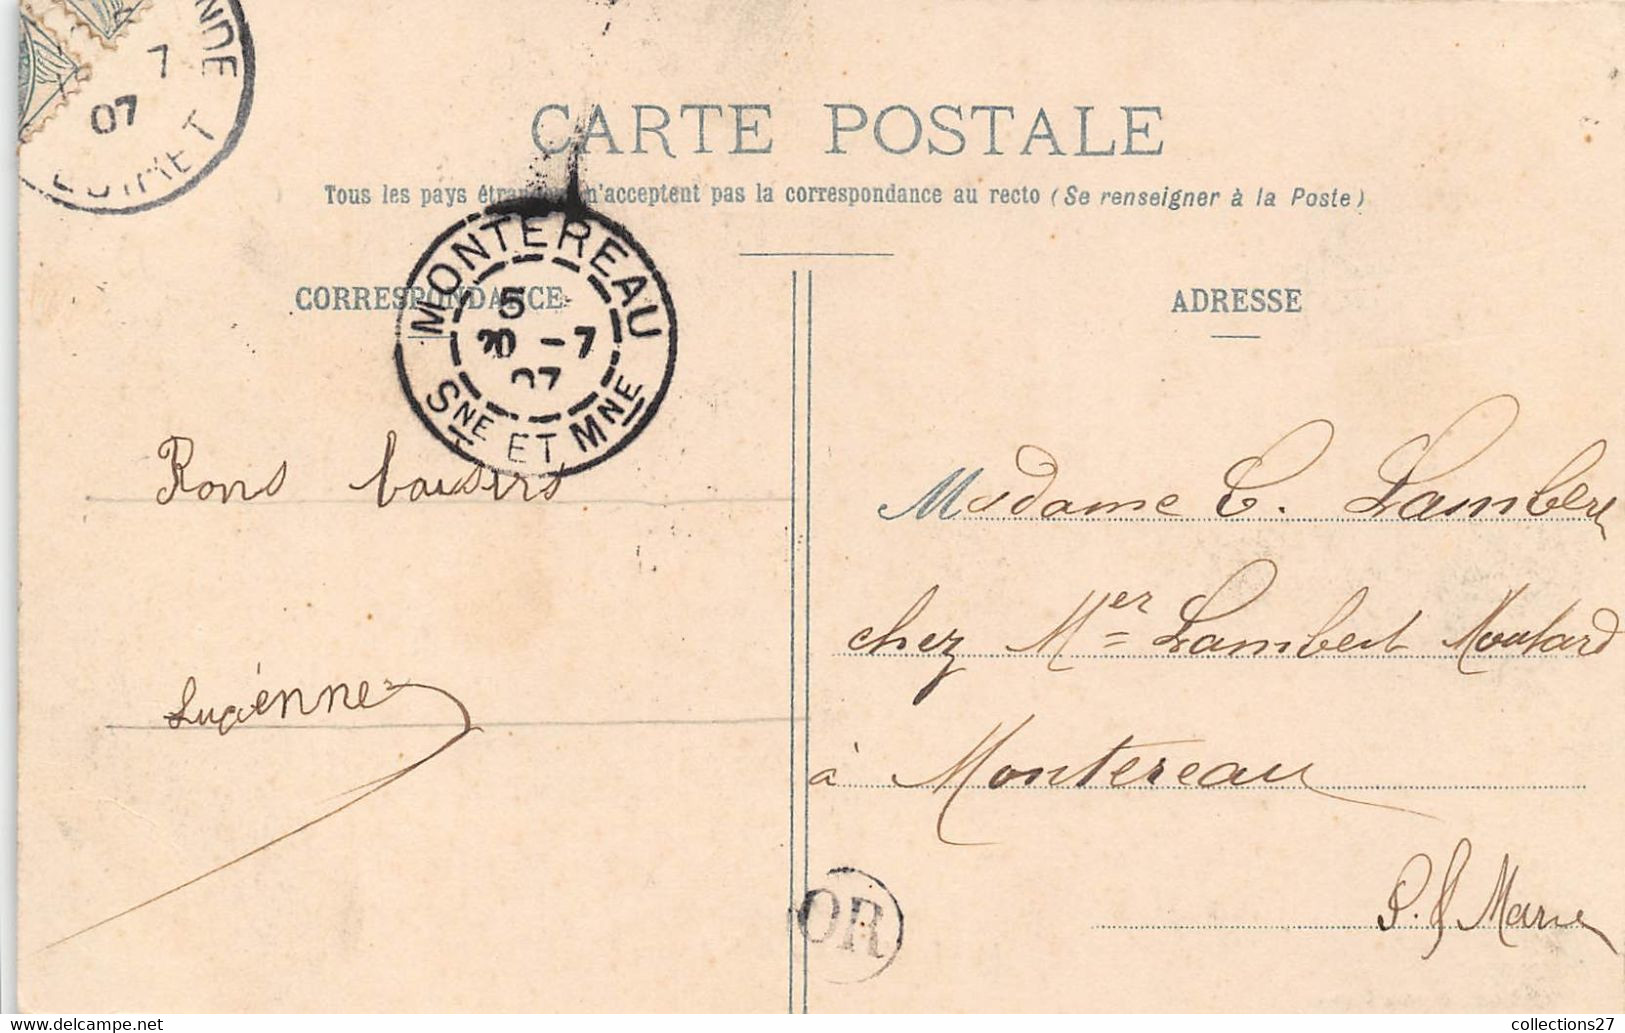 NNE
7
07
LOIRET
CARTE POSTALE
Tous les pays étrangers n'acceptent pas la correspondance au recto (Se renseigner à la Poste)
MONTEREAU
5
20 - 7
07
SNE ET MNE
CORRESPONDANCE
ADRESSE
Bons baisers
Lucienne
Madame C. Lambert
chez Mer Lambert Moutard
à Montereau
S. & Marne
OR
www.delcampe.net
collections27